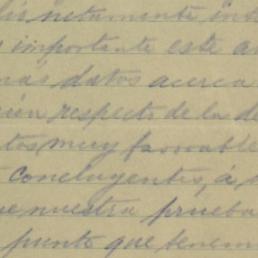 netamente in
importante este a
más datos acerca
respecto de la de
tos muy favorable
concluyentes, á
ue nuestra prueba
punto que tenem